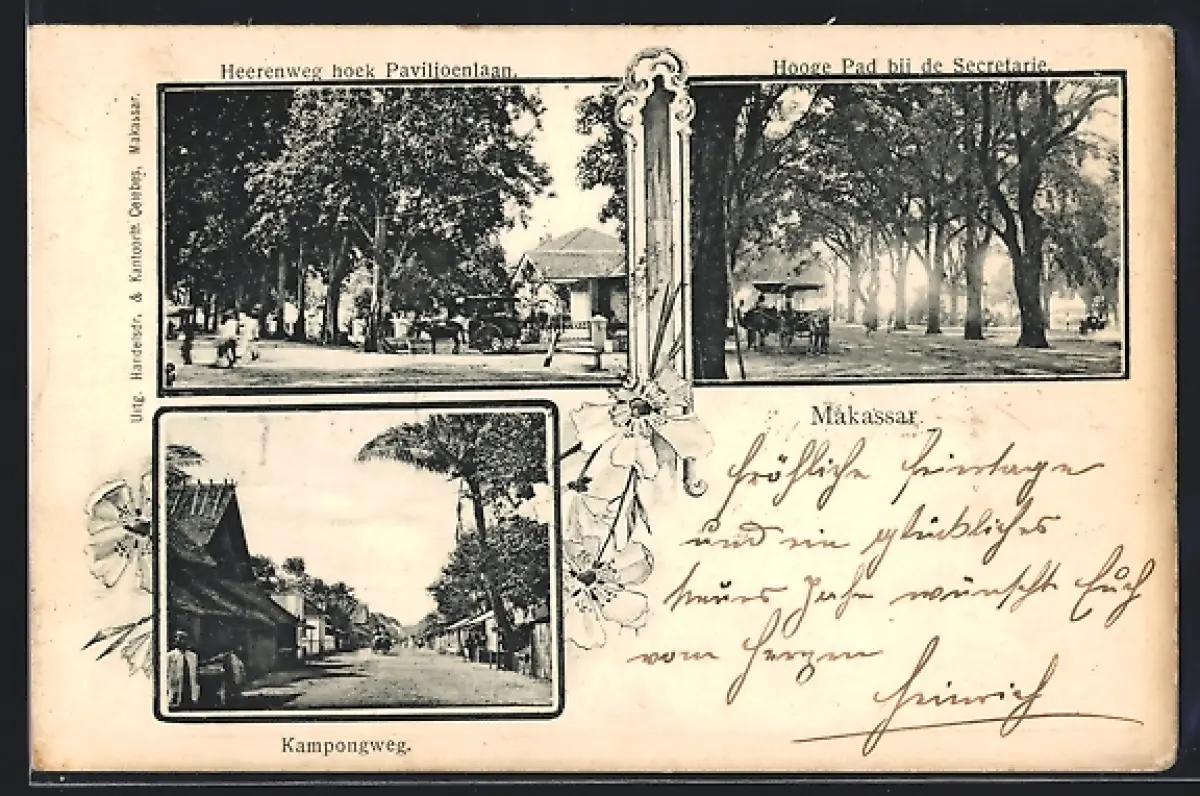 Heerenweg hoek Paviljoenlaan.
Hooge Pad bij de Secretarie.
Uitg. Handelsdr. & Kantoorth. Celebes, Makassar.
Makassar
Kampongweg.
Fröhliche Feiertage
und ein glückliches
neues Jahr wünscht Euch
vom Herzen
Heinrich